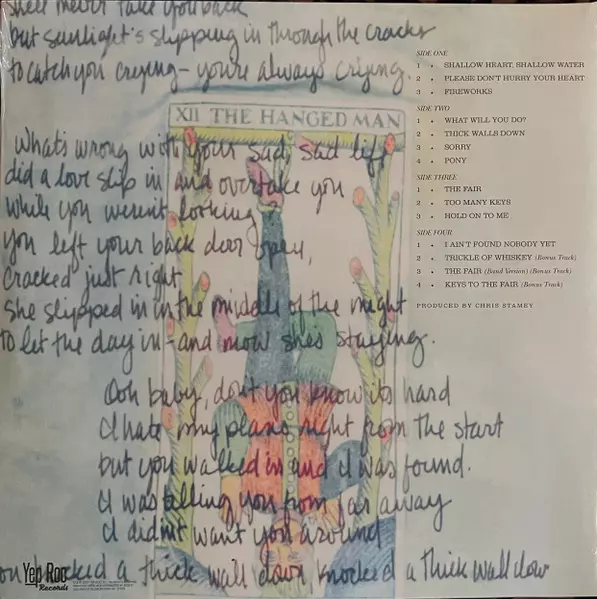 she'll never take you back
but sunlight's slipping in through the cracks
to catch you crying - you're always crying.
XII THE HANGED MAN
What's wrong with your sad, sad life
did a love slip in and overtake you
while you weren't looking
you left your back door open,
cracked just right
she slipped in in the middle of the night
to let the day in - and now she's staying.
Ooh baby, don't you know its hard
I hate my plans right from the start
but you walked in and I was found.
I was telling you from far away
I didn't want you around
knocked a thick wall down, knocked a thick wall dow
SIDE ONE
1 • SHALLOW HEART, SHALLOW WATER
2 • PLEASE DON'T HURRY YOUR HEART
3 • FIREWORKS
SIDE TWO
1 • WHAT WILL YOU DO?
2 • THICK WALLS DOWN
3 • SORRY
4 • PONY
SIDE THREE
1 • THE FAIR
2 • TOO MANY KEYS
3 • HOLD ON TO ME
SIDE FOUR
1 • I AIN'T FOUND NOBODY YET
2 • TRICKLE OF WHISKEY (Bonus Track)
3 • THE FAIR (Band Version) (Bonus Track)
4 • KEYS TO THE FAIR (Bonus Track)
PRODUCED BY CHRIS STAMEY
Yep Roc
Records